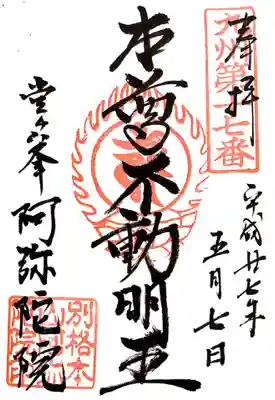 奉拝
九州第十七番
平成廿七年
五月七日
本尊不動明王
堂ヶ峯
阿弥陀院
別格本